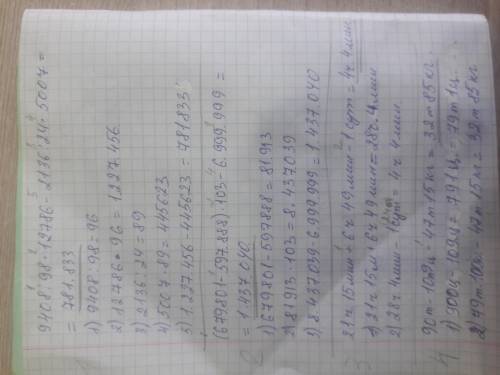 9408:98·12786-2136:24·5007=
= 781.833
1) 9408:98=96
2) 12786·96=1227.456
3) 2136:24=89
4) 5007·89=445623
5) 1.227.456-445623=781.833
(679.801-597.888)·103-6.999.999=
= 1.437.040
1) 679801-597888=81.913
2) 81913·103=8.437.039
3) 8.437.039-6.999.999=1.437.040
21ч 15мин+6ч 49мин-1сут=4ч 4мин
1) 21ч 15м+6ч 49мин=28ч 4мин
2) 28ч 4мин-1сут=4ч 4мин.
90т-109ц-47т 15кг=32т 85кг.
1) 900ц-109ц=791ц=79т 1ц
2) 79т 100кг-47т 15кг=32т 85кг